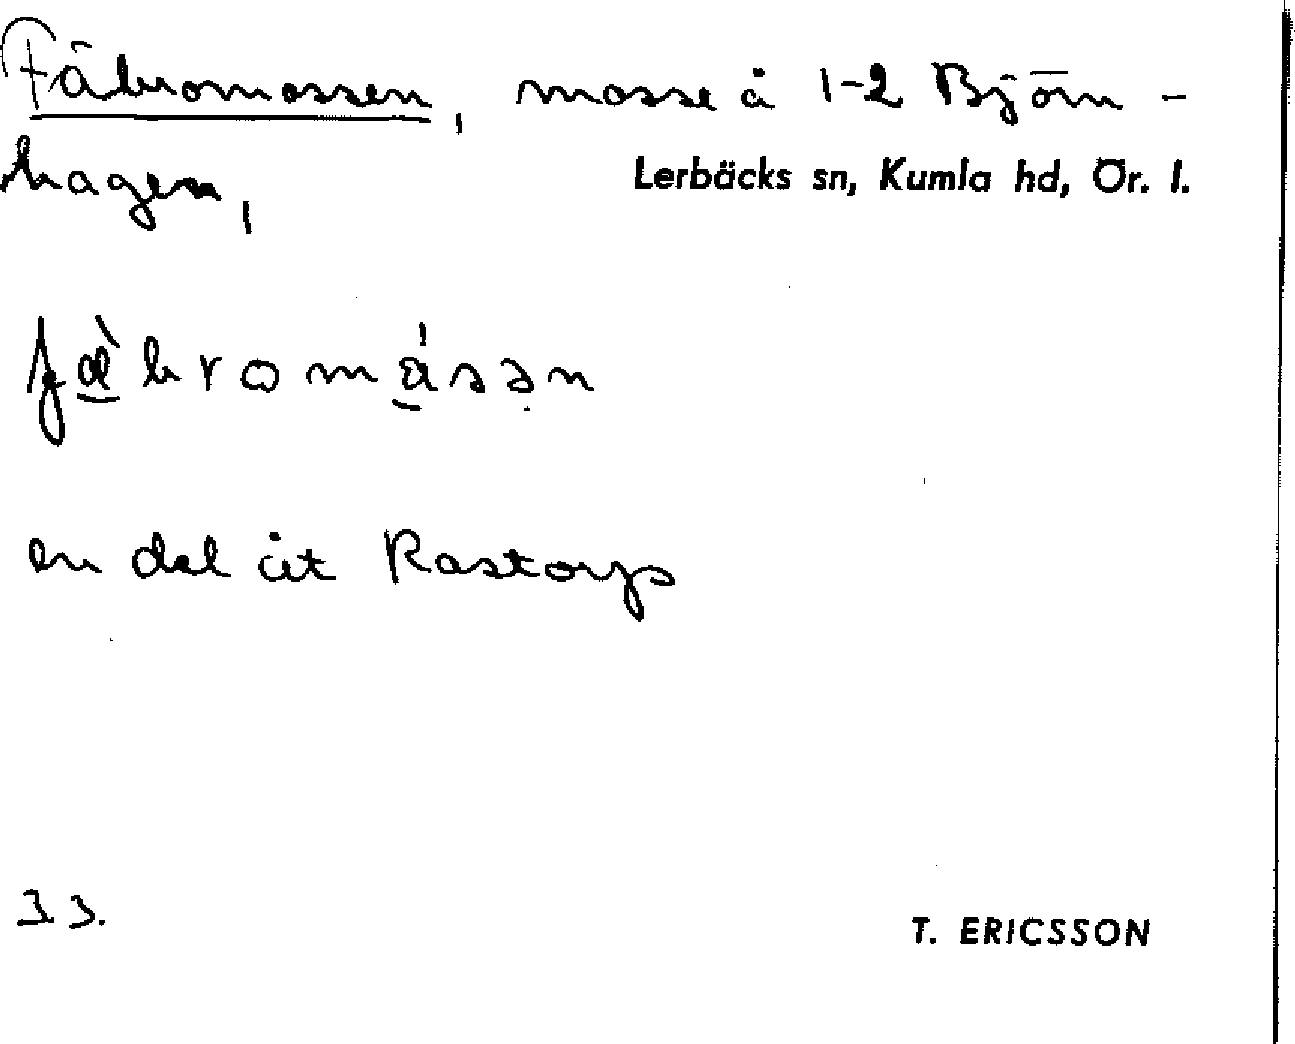 Fäbromossen, mosse å 1-2 Björn-
hagen,
Lerbäcks sn, Kumla hd, Ör. l.
fæ̀bromåsən
en del åt Rastorp
33.
T. ERICSSON